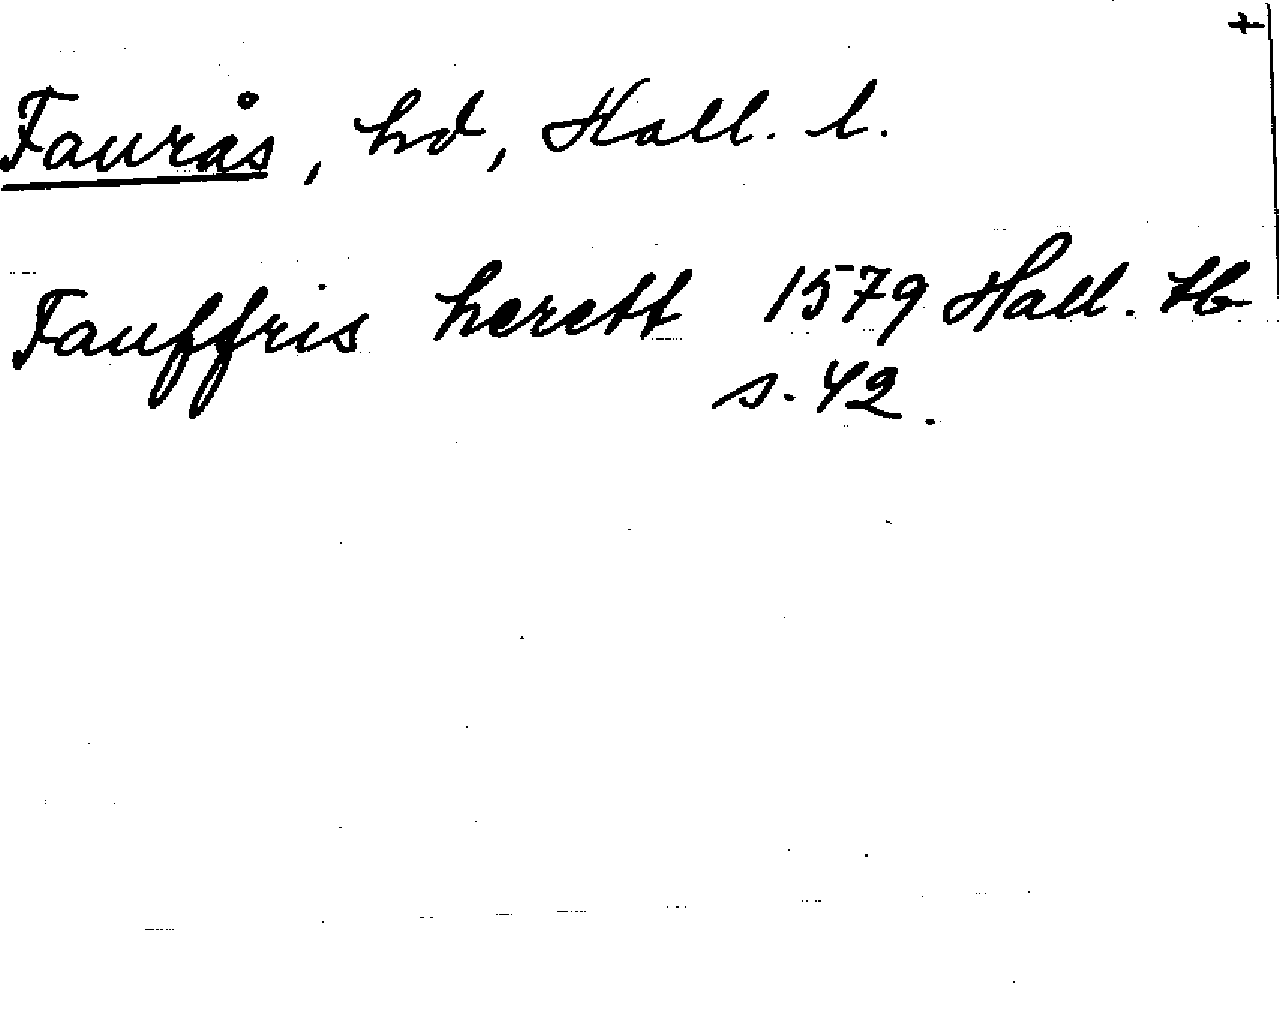 +
Faurås, hd, Hall. l.
Fauffris herett 1579 Hall. tb
s. 42.